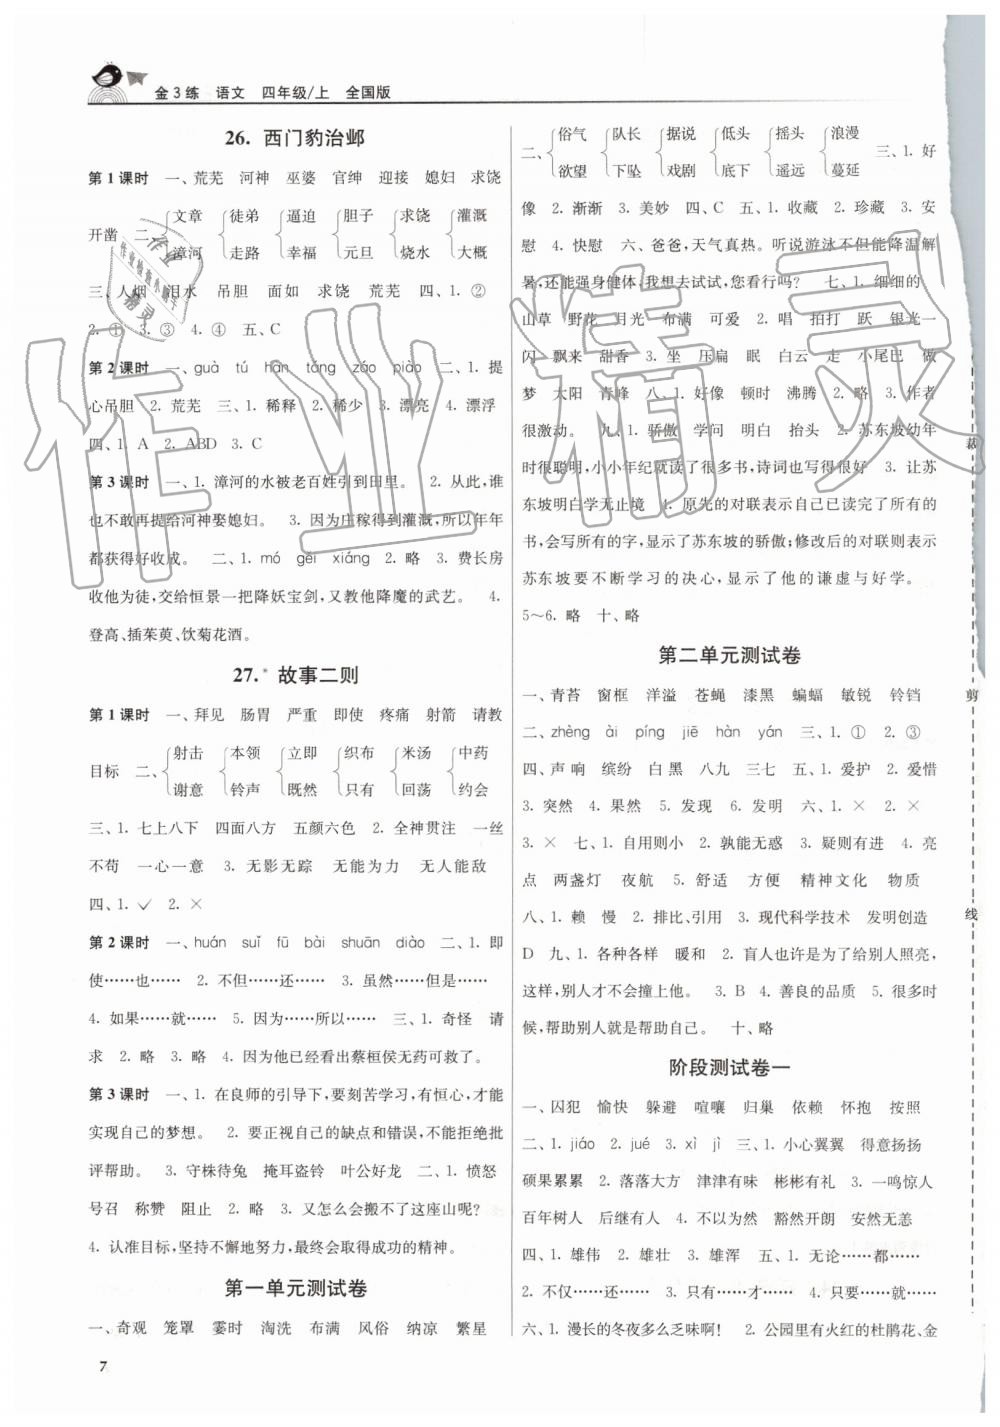 金3练 语文 四年级/上 全国版
26. 西门豹治邺
第1课时 一、荒芜 河神 巫婆 官绅 迎接 媳妇 求饶
文章 徒弟 逼迫 胆子 求饶 灌溉
开凿 二、
漳河 走路 幸福 元旦 烧水 大概
三、人烟 泪水 吊胆 面如 求饶 荒芜 四、1. ②
2. ① 3. ③ 4. ④ 五、C
第2课时 一、guà tú hān táng záo pào 二、1. 提
心吊胆 2. 荒芜 三、1. 稀释 2. 稀少 3. 漂亮 4. 漂浮
四、1. A 2. ABD 3. C
第3课时 一、1. 漳河的水被老百姓引到田里。 2. 从此,谁
也不敢再提给河神娶媳妇。 3. 因为庄稼得到灌溉,所以年年
都获得好收成。 二、1. mó gěi xiáng 2. 略 3. 费长房
收他为徒,交给恒景一把降妖宝剑,又教他降魔的武艺。 4.
登高、插茱萸、饮菊花酒。
27.* 故事二则
第1课时 一、拜见 肠胃 严重 即使 疼痛 射箭 请教
射击 本领 立即 织布 米汤 中药
目标 二、
谢意 铃声 既然 只有 回荡 约会
三、1. 七上八下 四面八方 五颜六色 2. 全神贯注 一丝
不苟 一心一意 3. 无影无踪 无能为力 无人能敌
四、1. ✓ 2. ×
第2课时 一、huán suǐ fū bài shuān diào 二、1. 即
使……也…… 2. 不但……还…… 3. 虽然……但是……
4. 如果……就…… 5. 因为……所以…… 三、1. 奇怪 请
求 2. 略 3. 略 4. 因为他已经看出蔡桓侯无药可救了。
第3课时 一、1. 在良师的引导下,要刻苦学习,有恒心,才能
实现自己的梦想。 2. 要正视自己的缺点和错误,不能拒绝批
评帮助。 3. 守株待兔 掩耳盗铃 叶公好龙 二、1. 愤怒
号召 称赞 阻止 2. 略 3. 又怎么会搬不了这座山呢?
4. 认准目标,坚持不懈地努力,最终会取得成功的精神。
第一单元测试卷
一、奇观 笼罩 霎时 淘洗 布满 风俗 纳凉 繁星
7
俗气 队长 据说 低头 摇头 浪漫
二、 三、1. 好
欲望 下坠 戏剧 底下 遥远 蔓延
像 2. 渐渐 3. 美妙 四、C 五、1. 收藏 2. 珍藏 3. 安
慰 4. 快慰 六、爸爸,天气真热。听说游泳不但能降温解
暑,还能强身健体,我想去试试,您看行吗? 七、1. 细细的
山草 野花 月光 布满 可爱 2. 唱 拍打 跃 银光一
闪 飘来 甜香 3. 坐 压扁 眠 白云 走 小尾巴 做
梦 太阳 青蜂 八、1. 好像 顿时 沸腾 2. 略 3. 作者
很激动。 九、1. 骄傲 学问 明白 抬头 2. 苏东坡幼年
时很聪明,小小年纪就读了很多书,诗词也写得很好 3. 让苏
东坡明白学无止境 4. 原先的对联表示自己已读完了所有的
书,会写所有的字,显示了苏东坡的骄傲;修改后的对联则表示
苏东坡要不断学习的决心,显示了他的谦虚与好学。
5～6. 略 十、略
第二单元测试卷
一、青苔 窗框 洋溢 苍蝇 漆黑 蝙蝠 敏锐 铃铛
二、zhèng ài píng jiē hàn yán 三、1. ① 2. ③
四、声 响 缤纷 白 黑 八九 三七 五、1. 爱护 2. 爱惜
3. 突然 4. 果然 5. 发现 6. 发明 六、1. × 2. ×
3. × 七、1. 自用则小 2. 孰能无惑 3. 疑则有进 4. 亮
点 两盏灯 夜航 5. 舒适 方便 精神文化 物质
八、1. 赖 慢 2. 排比、引用 3. 现代科学技术 发明创造
D 九、1. 各种各样 暖和 2. 盲人也许是为了给别人照亮,
这样,别人才不会撞上他。 3. B 4. 善良的品质 5. 很多时
候,帮助别人就是帮助自己。 十、略
阶段测试卷一
一、囚犯 愉快 躲避 喧嚷 归巢 依赖 怀抱 按照
二、1. jiáo 2. jué 3. xì jì 三、1. 小心翼翼 得意扬扬
硕果累累 2. 落落大方 津津有味 彬彬有礼 3. 一鸣惊人
百年树人 后继有人 4. 不以为然 豁然开朗 安然无恙
四、1. 雄伟 2. 雄壮 3. 雄浑 五、1. 无论……都……
2. 不仅……还…… 3. 只有……才…… 4. 只要……就……
六、1. 漫长的冬夜多么乏味啊! 2. 公园里有火红的杜鹃花、金
裁
剪
线
作业精灵
作业
作业检查小助手
精灵